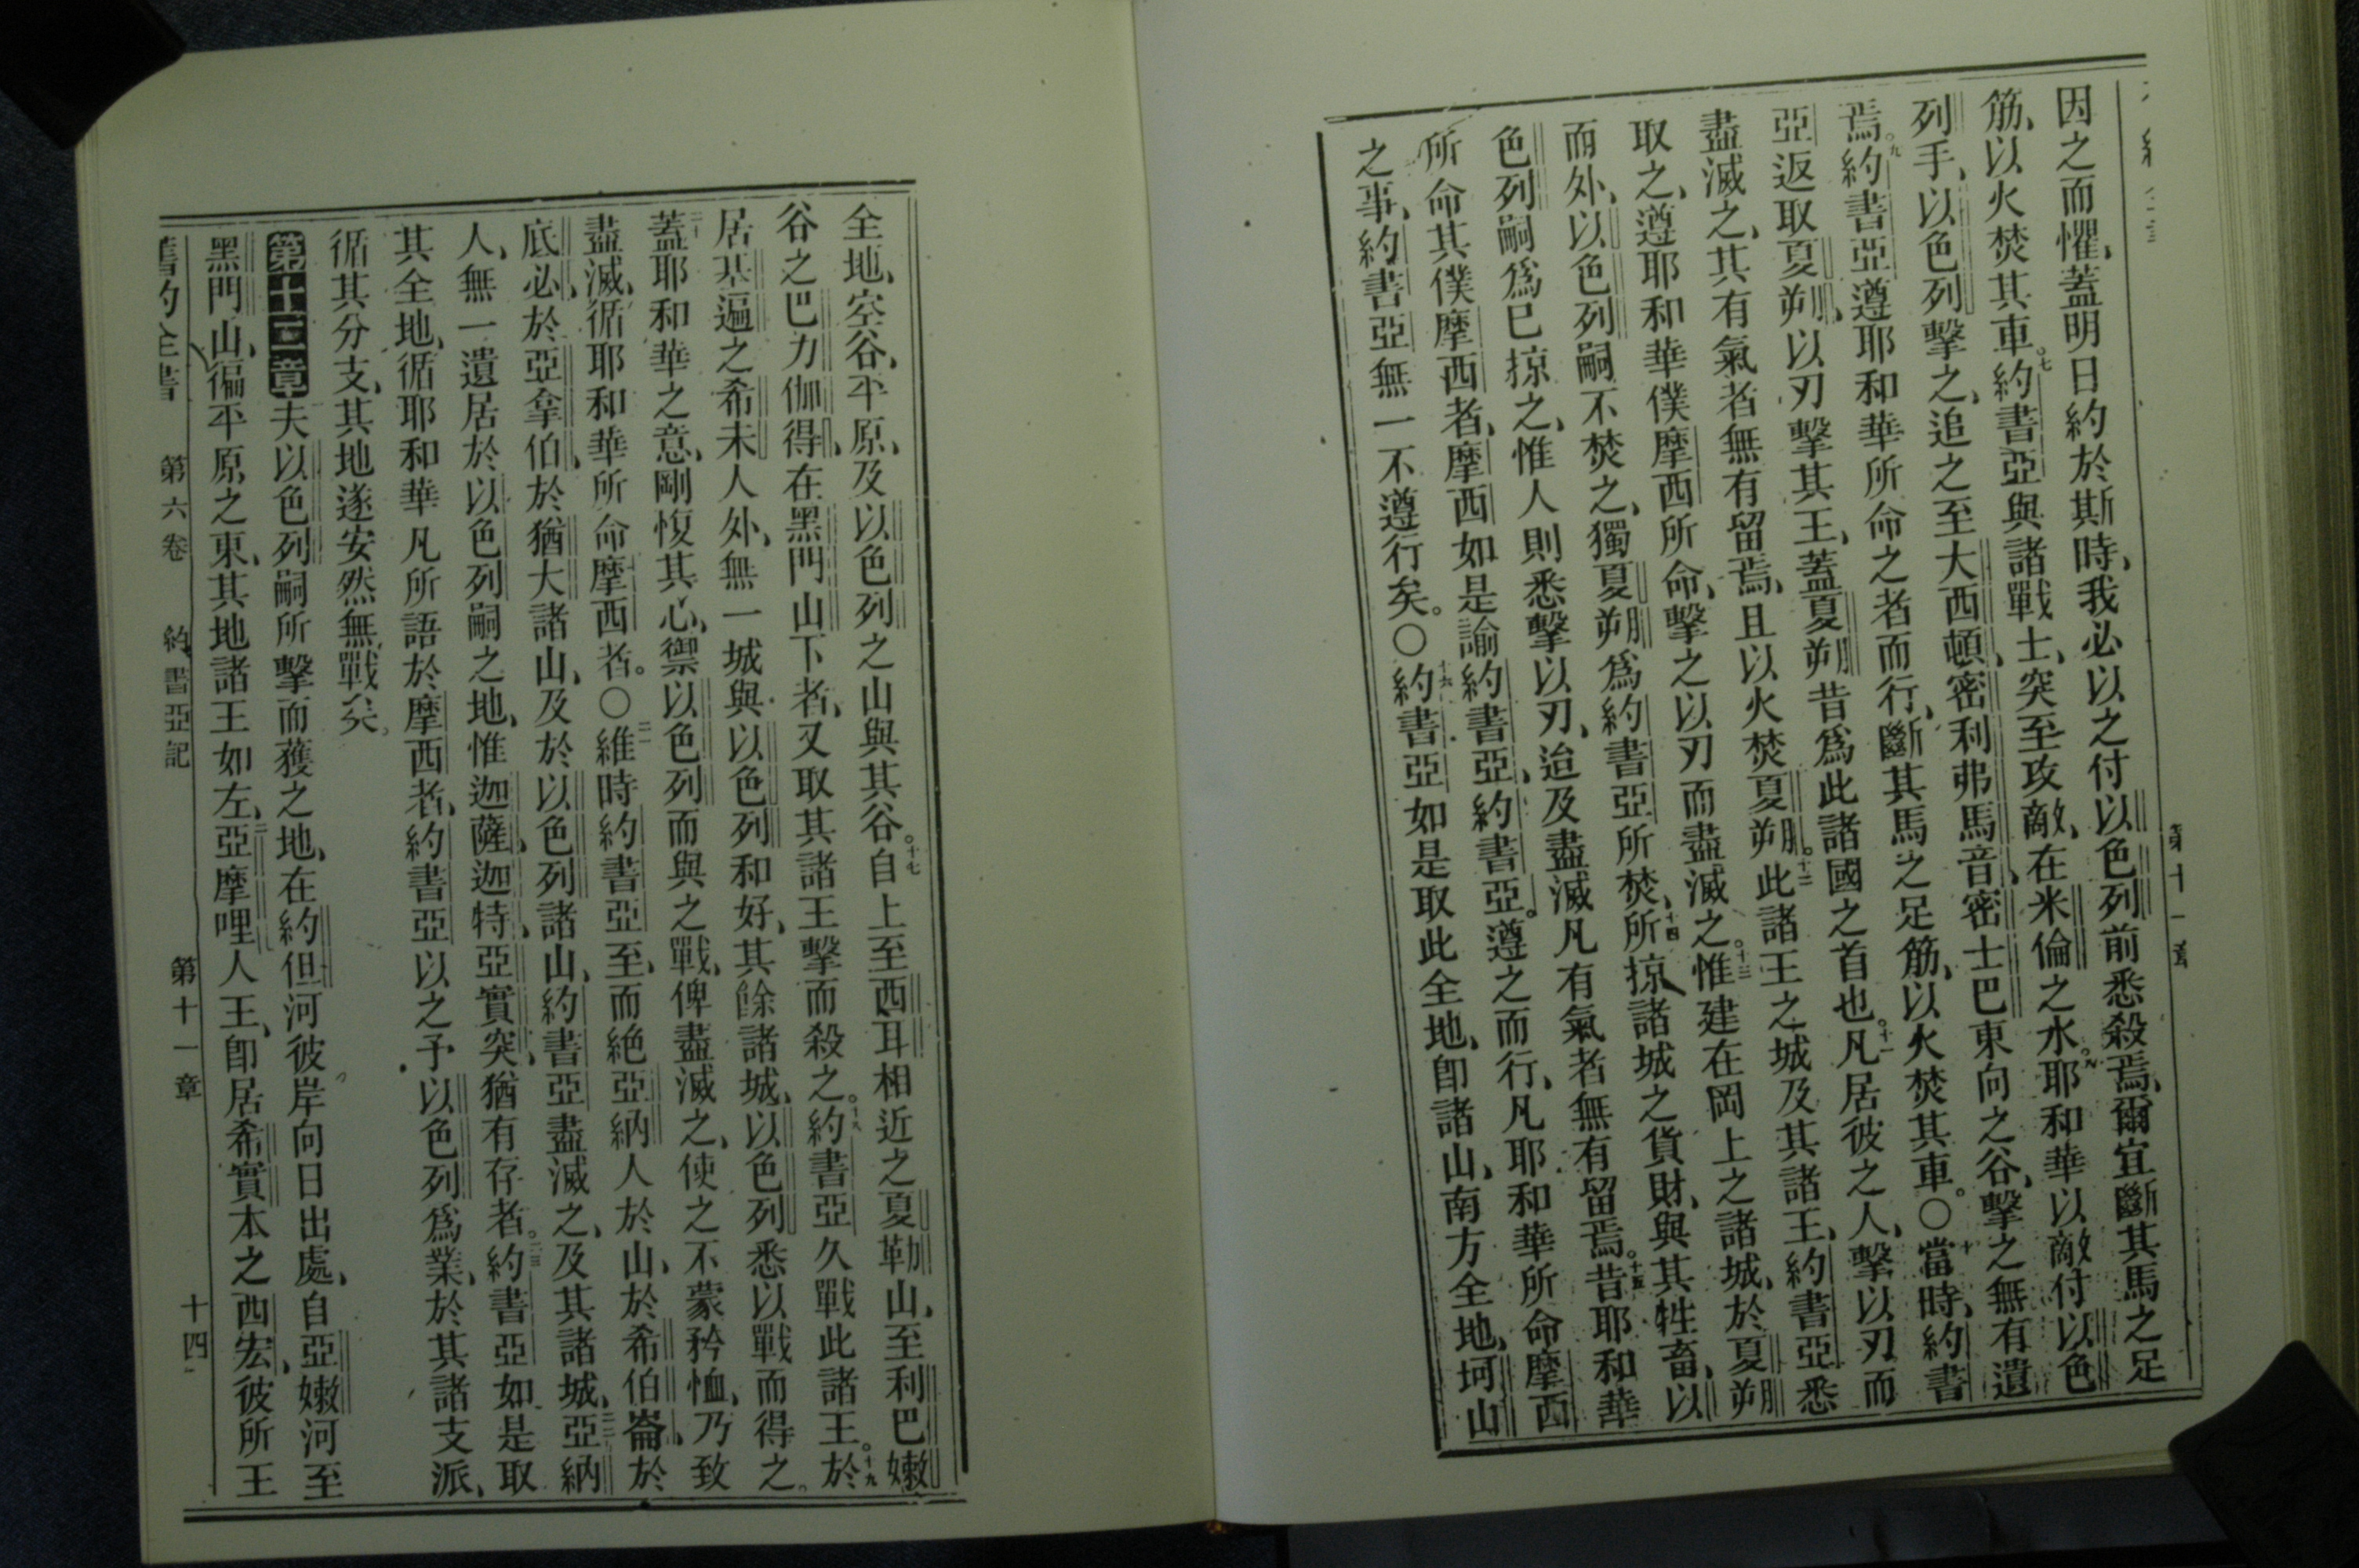 第十一章
因之而懼、蓋明日約於斯時、我必以之付以色列前悉殺焉、爾宜斷其馬之足
筋、以火焚其車。七約書亞與諸戰士、突至攻敵、在米倫之水。八耶和華以敵付以色
列手、以色列擊之、追之至大西頓、密利弗馬音、密士巴東向之谷、擊之無有遺
焉。九約書亞遵耶和華所命之者而行、斷其馬之足筋、以火焚其車。〇十當時、約書
亞返取夏朔、以刃擊其王、蓋夏朔昔爲此諸國之首也。十一凡居彼之人、擊以刃而
盡滅之、其有氣者無有留焉、且以火焚夏朔。十二此諸王之城及其諸王、約書亞悉
取之、遵耶和華僕摩西所命、擊之以刃而盡滅之。十三惟建在岡上之諸城、於夏朔
而外、以色列嗣不焚之、獨夏朔爲約書亞所焚、十四所掠諸城之貨財、與其牲畜、以
色列嗣爲已掠之、惟人則悉擊以刃、迨及盡滅凡有氣者無有留焉。十五昔耶和華
所命其僕摩西者、摩西如是諭約書亞、約書亞遵之而行、凡耶和華所命摩西
之事、約書亞無一不遵行矣。〇十六約書亞如是取此全地、卽諸山、南方全地、坷山
全地、空谷、平原、及以色列之山與其谷。十七自上至西耳相近之夏勒山、至利巴嫩
谷之巴力伽得、在黑門山下者、又取其諸王擊而殺之。十八約書亞久戰此諸王。十九於
居基遍之希未人外、無一城與以色列和好、其餘諸城、以色列悉以戰而得之。
二十蓋耶和華之意、剛愎其心、禦以色列而與之戰、俾盡滅之、使之不蒙矜恤、乃致
盡滅、循耶和華所命摩西者。〇二一維時約書亞至、而絶亞納人於山、於希伯崙、於
底必、於亞拿伯、於猶大諸山、及於以色列諸山、約書亞盡滅之、及其諸城、二二亞納
人、無一遺居於以色列嗣之地、惟迦薩、迦特、亞實突、猶有存者。二三約書亞如是取
其全地、循耶和華凡所語於摩西者、約書亞以之予以色列爲業、於其諸支派、
循其分支、其地遂安然無戰矣。
第十二章夫以色列嗣所擊而獲之地、在約但河彼岸向日出處、自亞嫩河至
黑門山、徧平原之東、其地諸王如左、二亞摩哩人王、卽居希實本之西宏、彼所王
舊約全書 第六卷 約書亞記 第十一章 十四